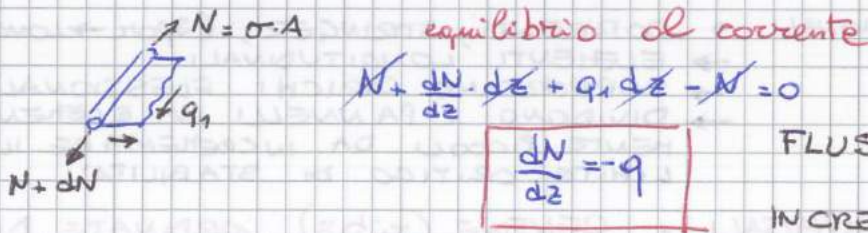 N = σ·A
equilibrio al corrente
N + dN/dz · dz + q₁ dz - N = 0
q₁
N + dN
dN/dz = -q
FLUS
INCRE